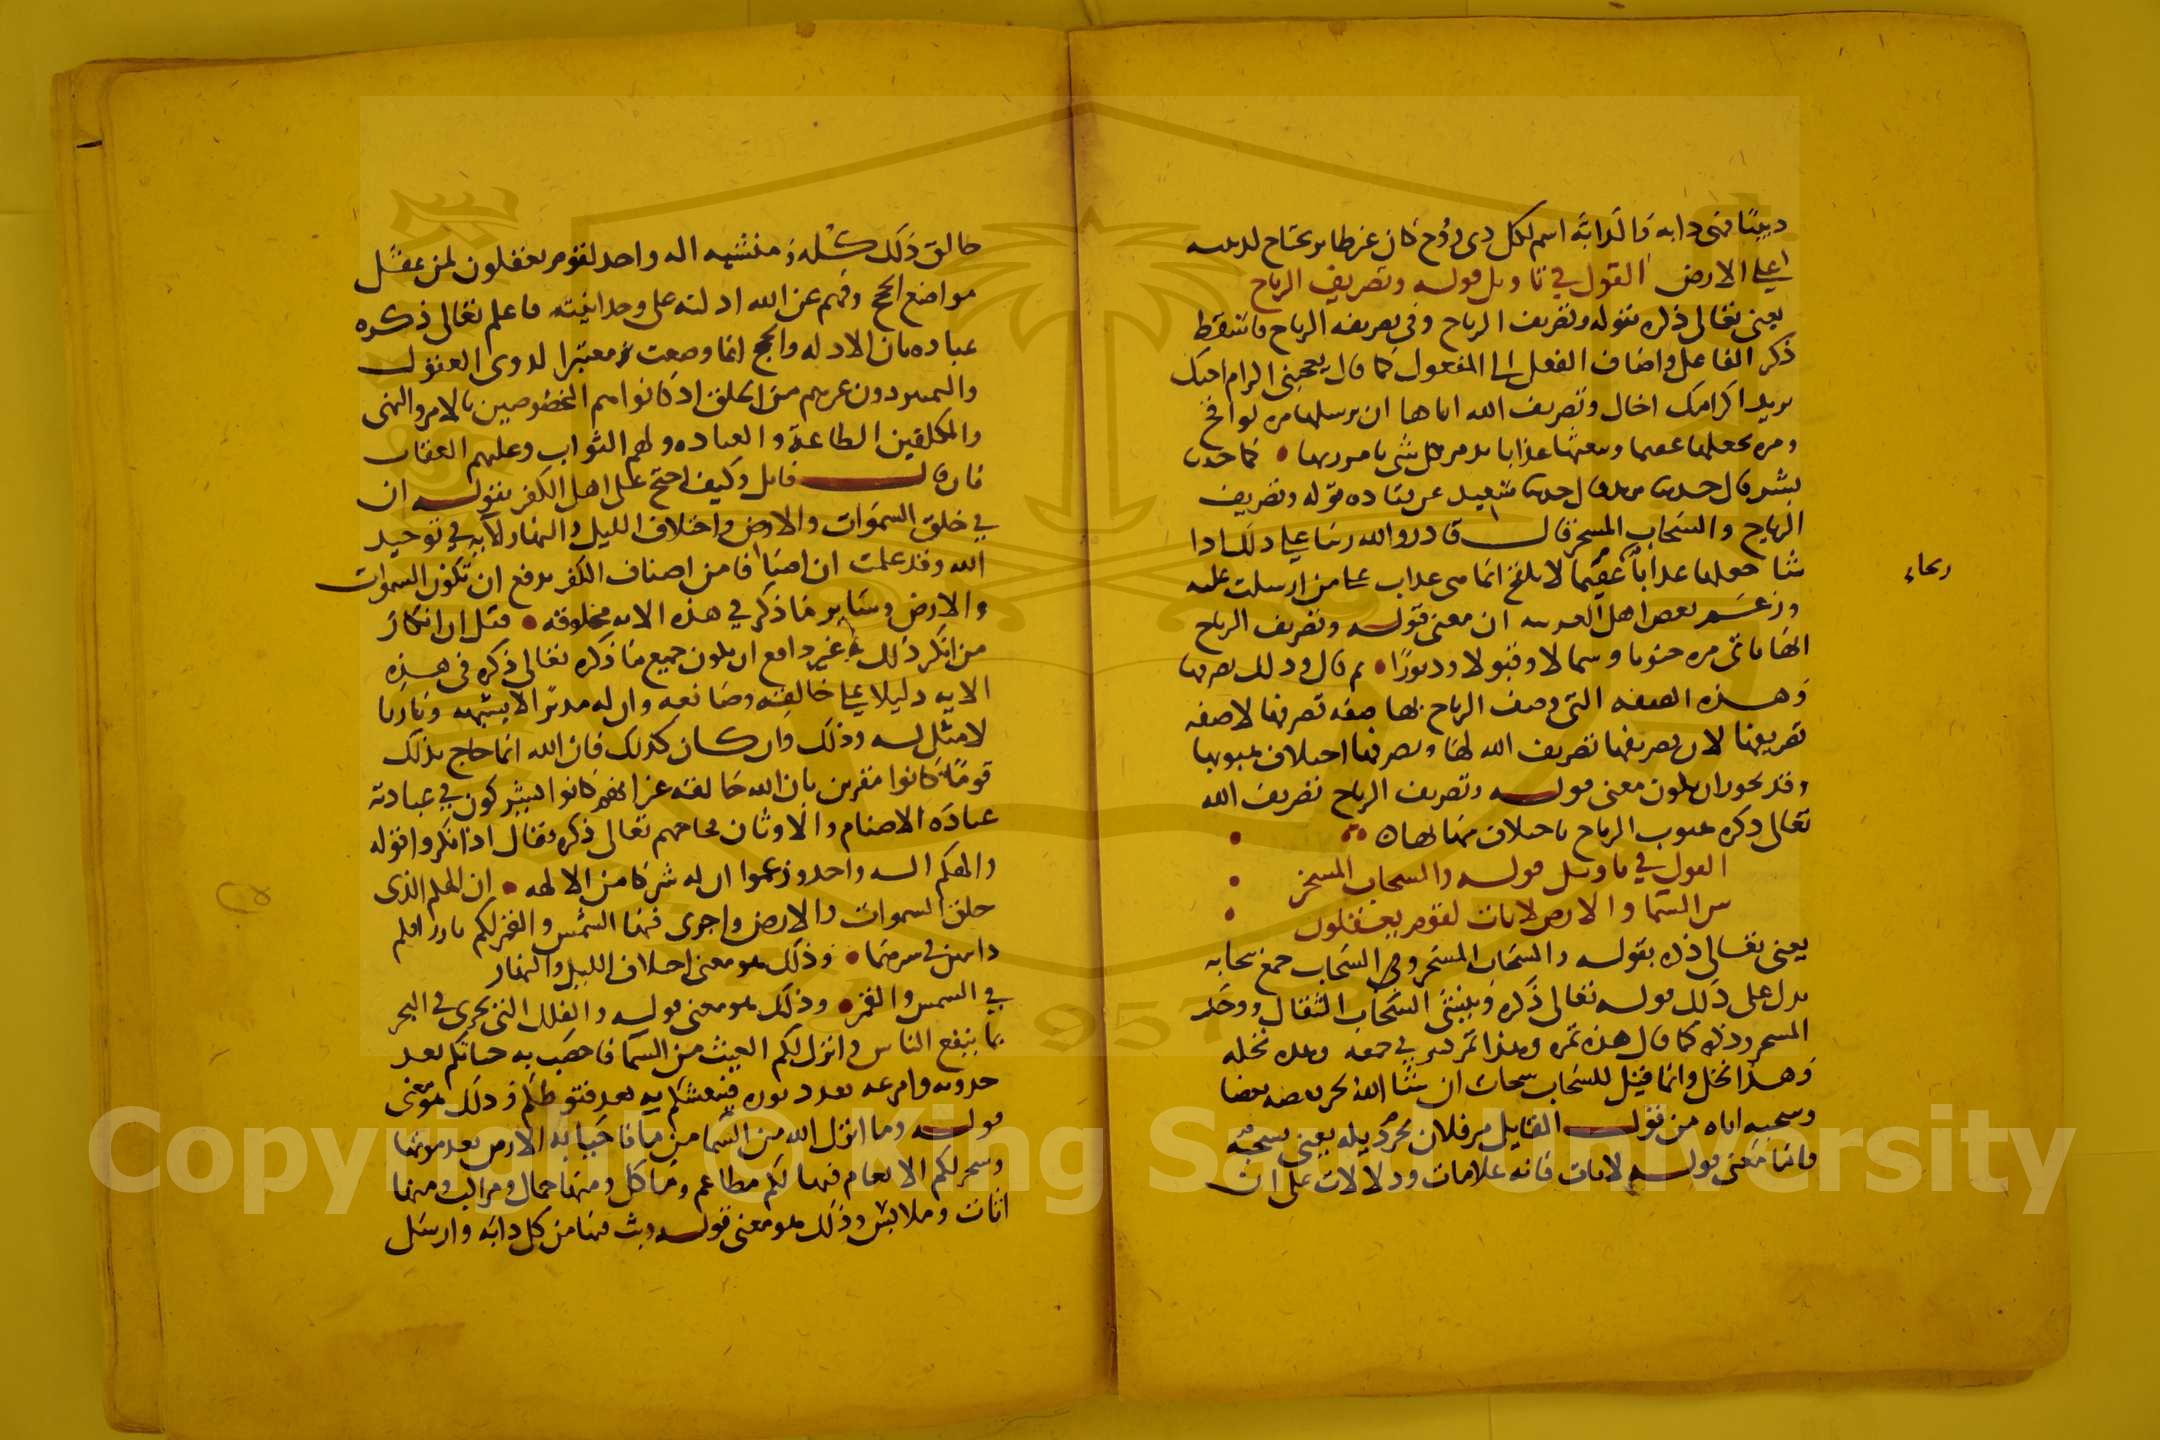 دبيبا فهي دابه والدابة اسم لكل ذي روح كان غير طاير بجناح لدبيبه
على الارض القول في تاويل قوله وتصريف الرياح
يعني تعالى ذكره بقوله وتصريف الرياح وفي تصريفه الرياح فاسقط
ذكر الفاعل واضاف الفعل الى المفعول كما قال يعجبني اكرام اخيك
يريد اكرامك اخاك وتصريف الله اياها ان يرسلها مره لواقح
ومره يجعلها عقيما ويبعثها عذابا تدمر كل شي بامر ربها • كما حدثنا
بشر قال حدثنا يزيد قال حدثنا سعيد عن قتاده قوله وتصريف
الرياح والسحاب المسخر قال قادر والله ربنا على ذلك اذا
شا جعلها عذابا عقيما لا يلقح انما هي عذاب على من ارسلت عليه
وزعم بعض اهل العربيه ان معنى قوله وتصريف الرياح
انها تاتي مره جنوبا وشمالا وقبولا ودبورا • ثم قال وذلك تصريفها
وهذه الصفه التي وصف الرياح بها صفه تصرفها لا صفه
تصريفها لان تصريفها تصريف الله لها وتصرفها اختلاف هبوبها
وقد يجوز ان يكون معنى قوله وتصريف الرياح تصريف الله
تعالى ذكره هبوب الرياح باختلاف مهابها
القول في تاويل قوله والسحاب المسخر
بين السما والارض لايات لقوم يعقلون
يعني تعالى ذكره بقوله والسحاب المسخر وفي السحاب جمع سحابه
يدل على ذلك قوله تعالى ذكره وينشئ السحاب الثقال ووحد
المسخر وذكره كما قال هذه تمره وهذا تمر كثير في جمعه وهذه نخله
وهذا نخل وانما قيل للسحاب سحاب ان شا الله لجر بعضه بعضا
وسحبه اياه من قول القايل مر فلان يجر ذيله يعني يسحبه
فاما معنى قوله لايات فانه علامات ودلالات على ان
خالق ذلك كله ومنشيه اله واحد لقوم يعقلون لمن عقل
مواضع الحجج وفهم عن الله ادلته على وحدانيته فاعلم تعالى ذكره
عباده بان الادله والحجج انما وضعت معتبرا لذوي العقول
والتمييز دون غيرهم من الخلق اذ كانوا هم المخصوصين بالامر والنهي
والمكلفين الطاعة والعباده ولهم الثواب وعليهم العقاب
فان قال قايل وكيف احتج على اهل الكفر بقوله ان
في خلق السموات والارض واختلاف الليل والنهار لآيه في توحيد
الله وقد علمت ان اصنافا من اصناف الكفر يدفع ان تكون السموات
والارض وساير ما ذكر في هذه الايه مخلوقه • قيل ان انكار
من انكر ذلك غير دافع ان يكون جميع ما ذكره تعالى ذكره في هذه
الايه دليلا على خالقه وصانعه وان له مدبرا لا يشبهه وباريا
لا مثل له وذلك وان كان كذلك فان الله انما حاج بذلك
قوما كانوا مقرين بان الله خالقه غير انهم كانوا يشركون في عبادته
عبادة الاصنام والاوثان فحاجهم تعالى ذكره فقال اذ انكروا قوله
والهكم اله واحد وزعموا ان له شركا من الالهه • ان الهكم الذي
خلق السموات والارض واجرى فيها الشمس والقمر لكم بارزاقكم
دائبين في سيرهما • وذلك هو معنى اختلاف الليل والنهار
في الشمس والقمر • وذلك هو معنى قوله والفلك التي تجري في البحر
بما ينفع الناس وانزل لكم الغيث من السما فاخصب به جنابكم بعد
جدوبه وامرعه بعد دثوره فنعشكم به بعد قنوطكم وذلك معنى
قوله وما انزل الله من السما من ما فاحيا به الارض بعد موتها
وسخر لكم الانعام فيها لكم مطاعم وماكل ومنها جمال ومراكب ومنها
اثاث وملابس وذلك هو معنى قوله وبث فيها من كل دابه وارسل